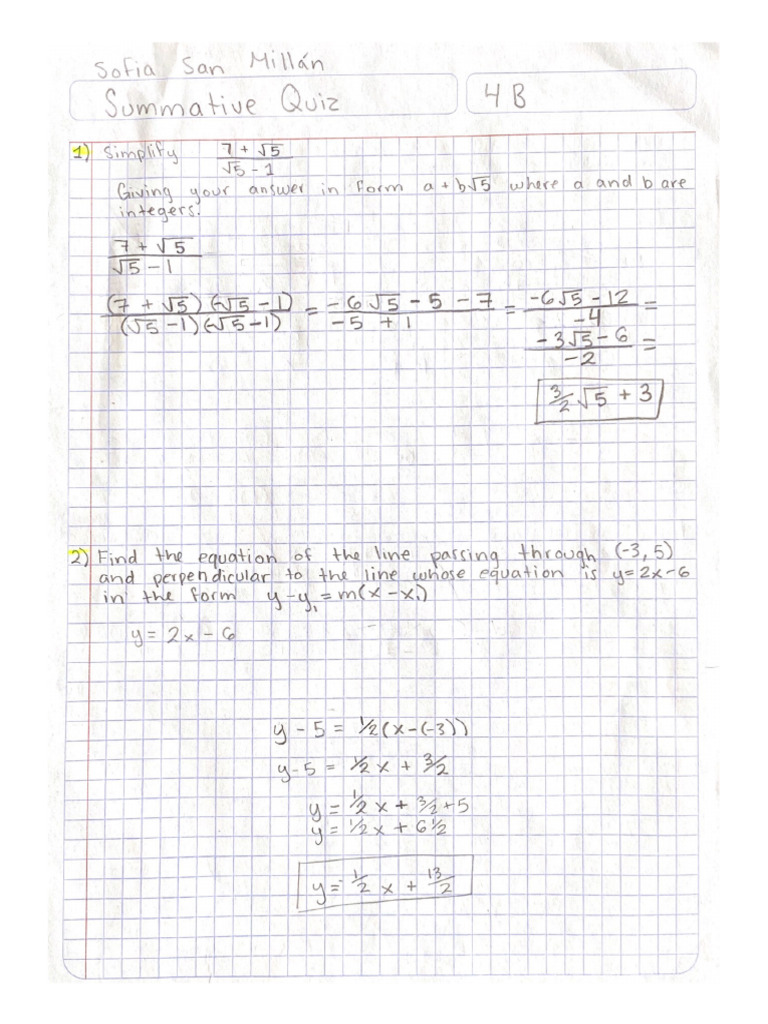 Sofia San Millán
Summative Quiz
4B
1) Simplify (7 + √5)/(√5 - 1)
Giving your answer in form a + b√5 where a and b are
integers.
(7 + √5)/(√5 - 1)
(7 + √5)(-√5 - 1)/(√5 - 1)(-√5 - 1) = (-6√5 - 5 - 7)/(-5 + 1) = (-6√5 - 12)/(-4) =
(-3√5 - 6)/(-2) =
3/2 √5 + 3
2) Find the equation of the line passing through (-3, 5)
and perpendicular to the line whose equation is y=2x-6
in the form y-y₁=m(x-x₁)
y = 2x - 6
y - 5 = 1/2(x-(-3))
y-5 = 1/2x + 3/2
y = 1/2x + 3/2+5
y = 1/2x + 6 1/2
y = 1/2 x + 13/2